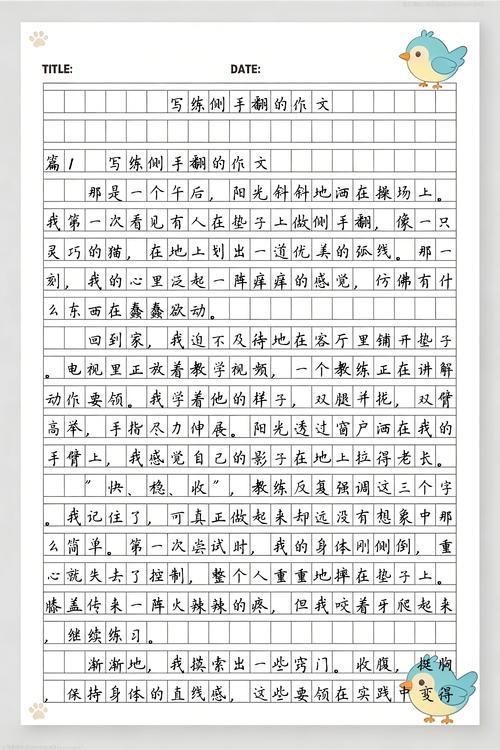 TITLE: DATE:
写练侧手翻的作文
篇1 写练侧手翻的作文
那是一个午后，阳光斜斜地洒在操场上。
我第一次看见有人在垫子上做侧手翻，像一只
灵巧的猫，在地上划出一道优美的弧线。那一
刻，我的心里泛起一阵痒痒的感觉，仿佛有什
么东西在蠢蠢欲动。
回到家，我迫不及待地在客厅里铺开垫子
。电视里正放着教学视频，一个教练正在讲解
动作要领。我学着他的样子，双腿并拢，双臂
高举，手指尽力伸展。阳光透过窗户洒在我的
手臂上，我感觉自己的影子在地上拉得老长。
"快、稳、收"，教练反复强调这三个字
。我记住了，可真正做起来却远没有想象中那
么简单。第一次尝试时，我的身体刚侧倒，重
心就失去了控制，整个人重重地摔在垫子上。
膝盖传来一阵火辣辣的疼，但我咬着牙爬起来
，继续练习。
渐渐地，我摸索出一些窍门。收腹，挺胸
，保持身体的直线感，这些要领在实践中变得